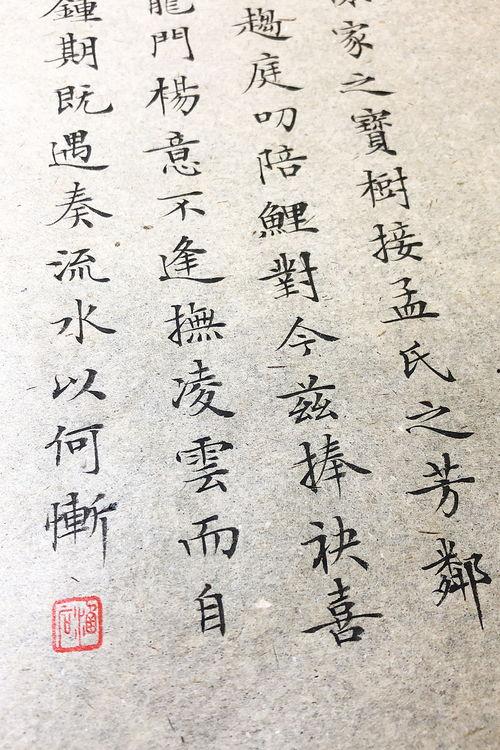 家之寶樹接孟氏之芳鄰
趨庭叨陪鯉對今茲捧袂喜
龍門楊意不逢撫凌雲而自
鍾期既遇奏流水以何慚